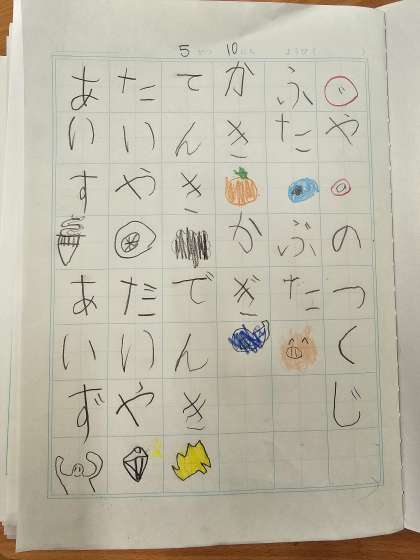 5がつ 10にち ようび( )
゛や゜のつくじ
ふた
ぶた
かき
かぎ
てんき
でんき
たいや
だいや
あいす
あいず